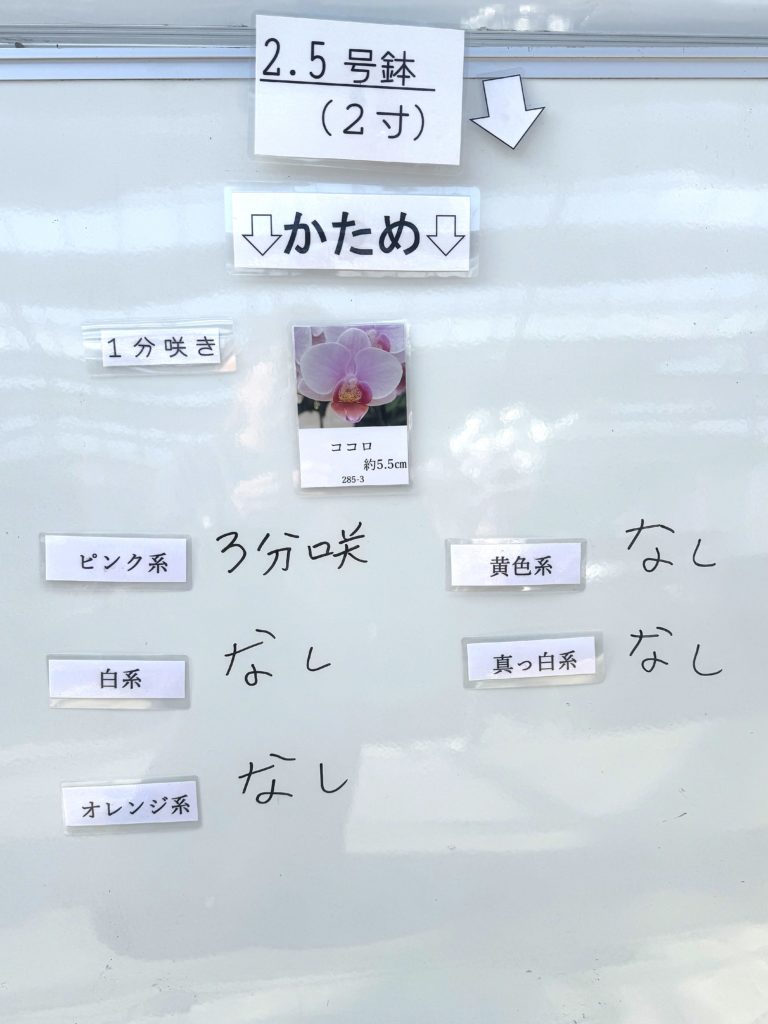 2.5号鉢
(2寸)
かため
1分咲き
ココロ
約5.5cm
285-3
ピンク系 3分咲
黄色系 なし
白系 なし
真っ白系 なし
オレンジ系 なし